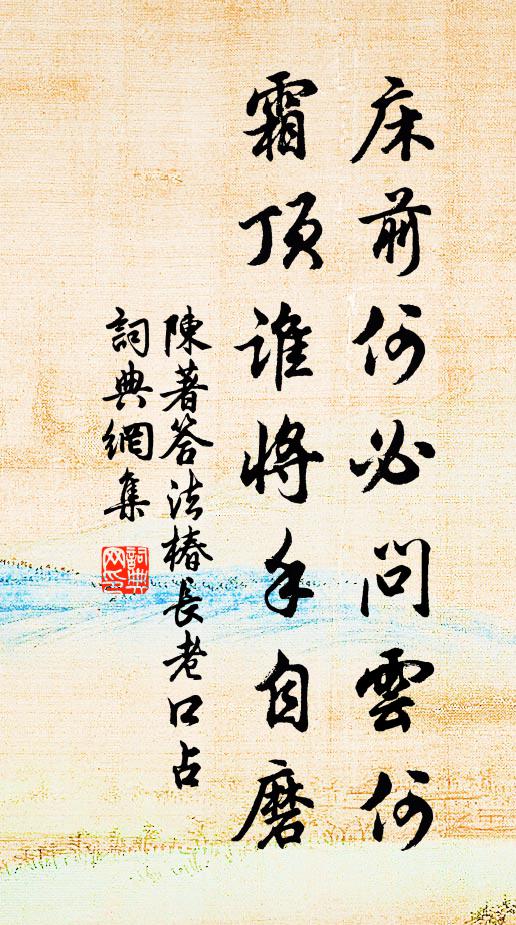 床前何必問雲何
霜頂誰將手自磨
陳著答法椿長老口占
詞典網集
詞典
网